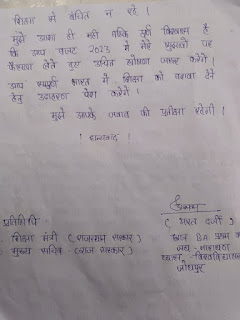 शिक्षा से वंचित न रहे।
मुझे आशा ही नहीं बल्कि पूर्ण विश्वास है
कि आप बजट 2023 में मेरे सुझावों पर
फैसला लेते हुए उचित घोषणा जरूर करेंगे।
आप सम्पूर्ण भारत में शिक्षा को बढ़ावा देने
हेतु उदाहरण पेश करेंगे।
मुझे आपके जवाब की प्रतीक्षा रहेगी।
। धन्यवाद।
प्रतिलिपि
शिक्षा मंत्री (राजस्थान सरकार)
मुख्य सचिव - (राज सरकार)
(भरत दर्जी)
छात्र BA प्रथम वर्ष
विश्वविद्यालय
जोधपुर